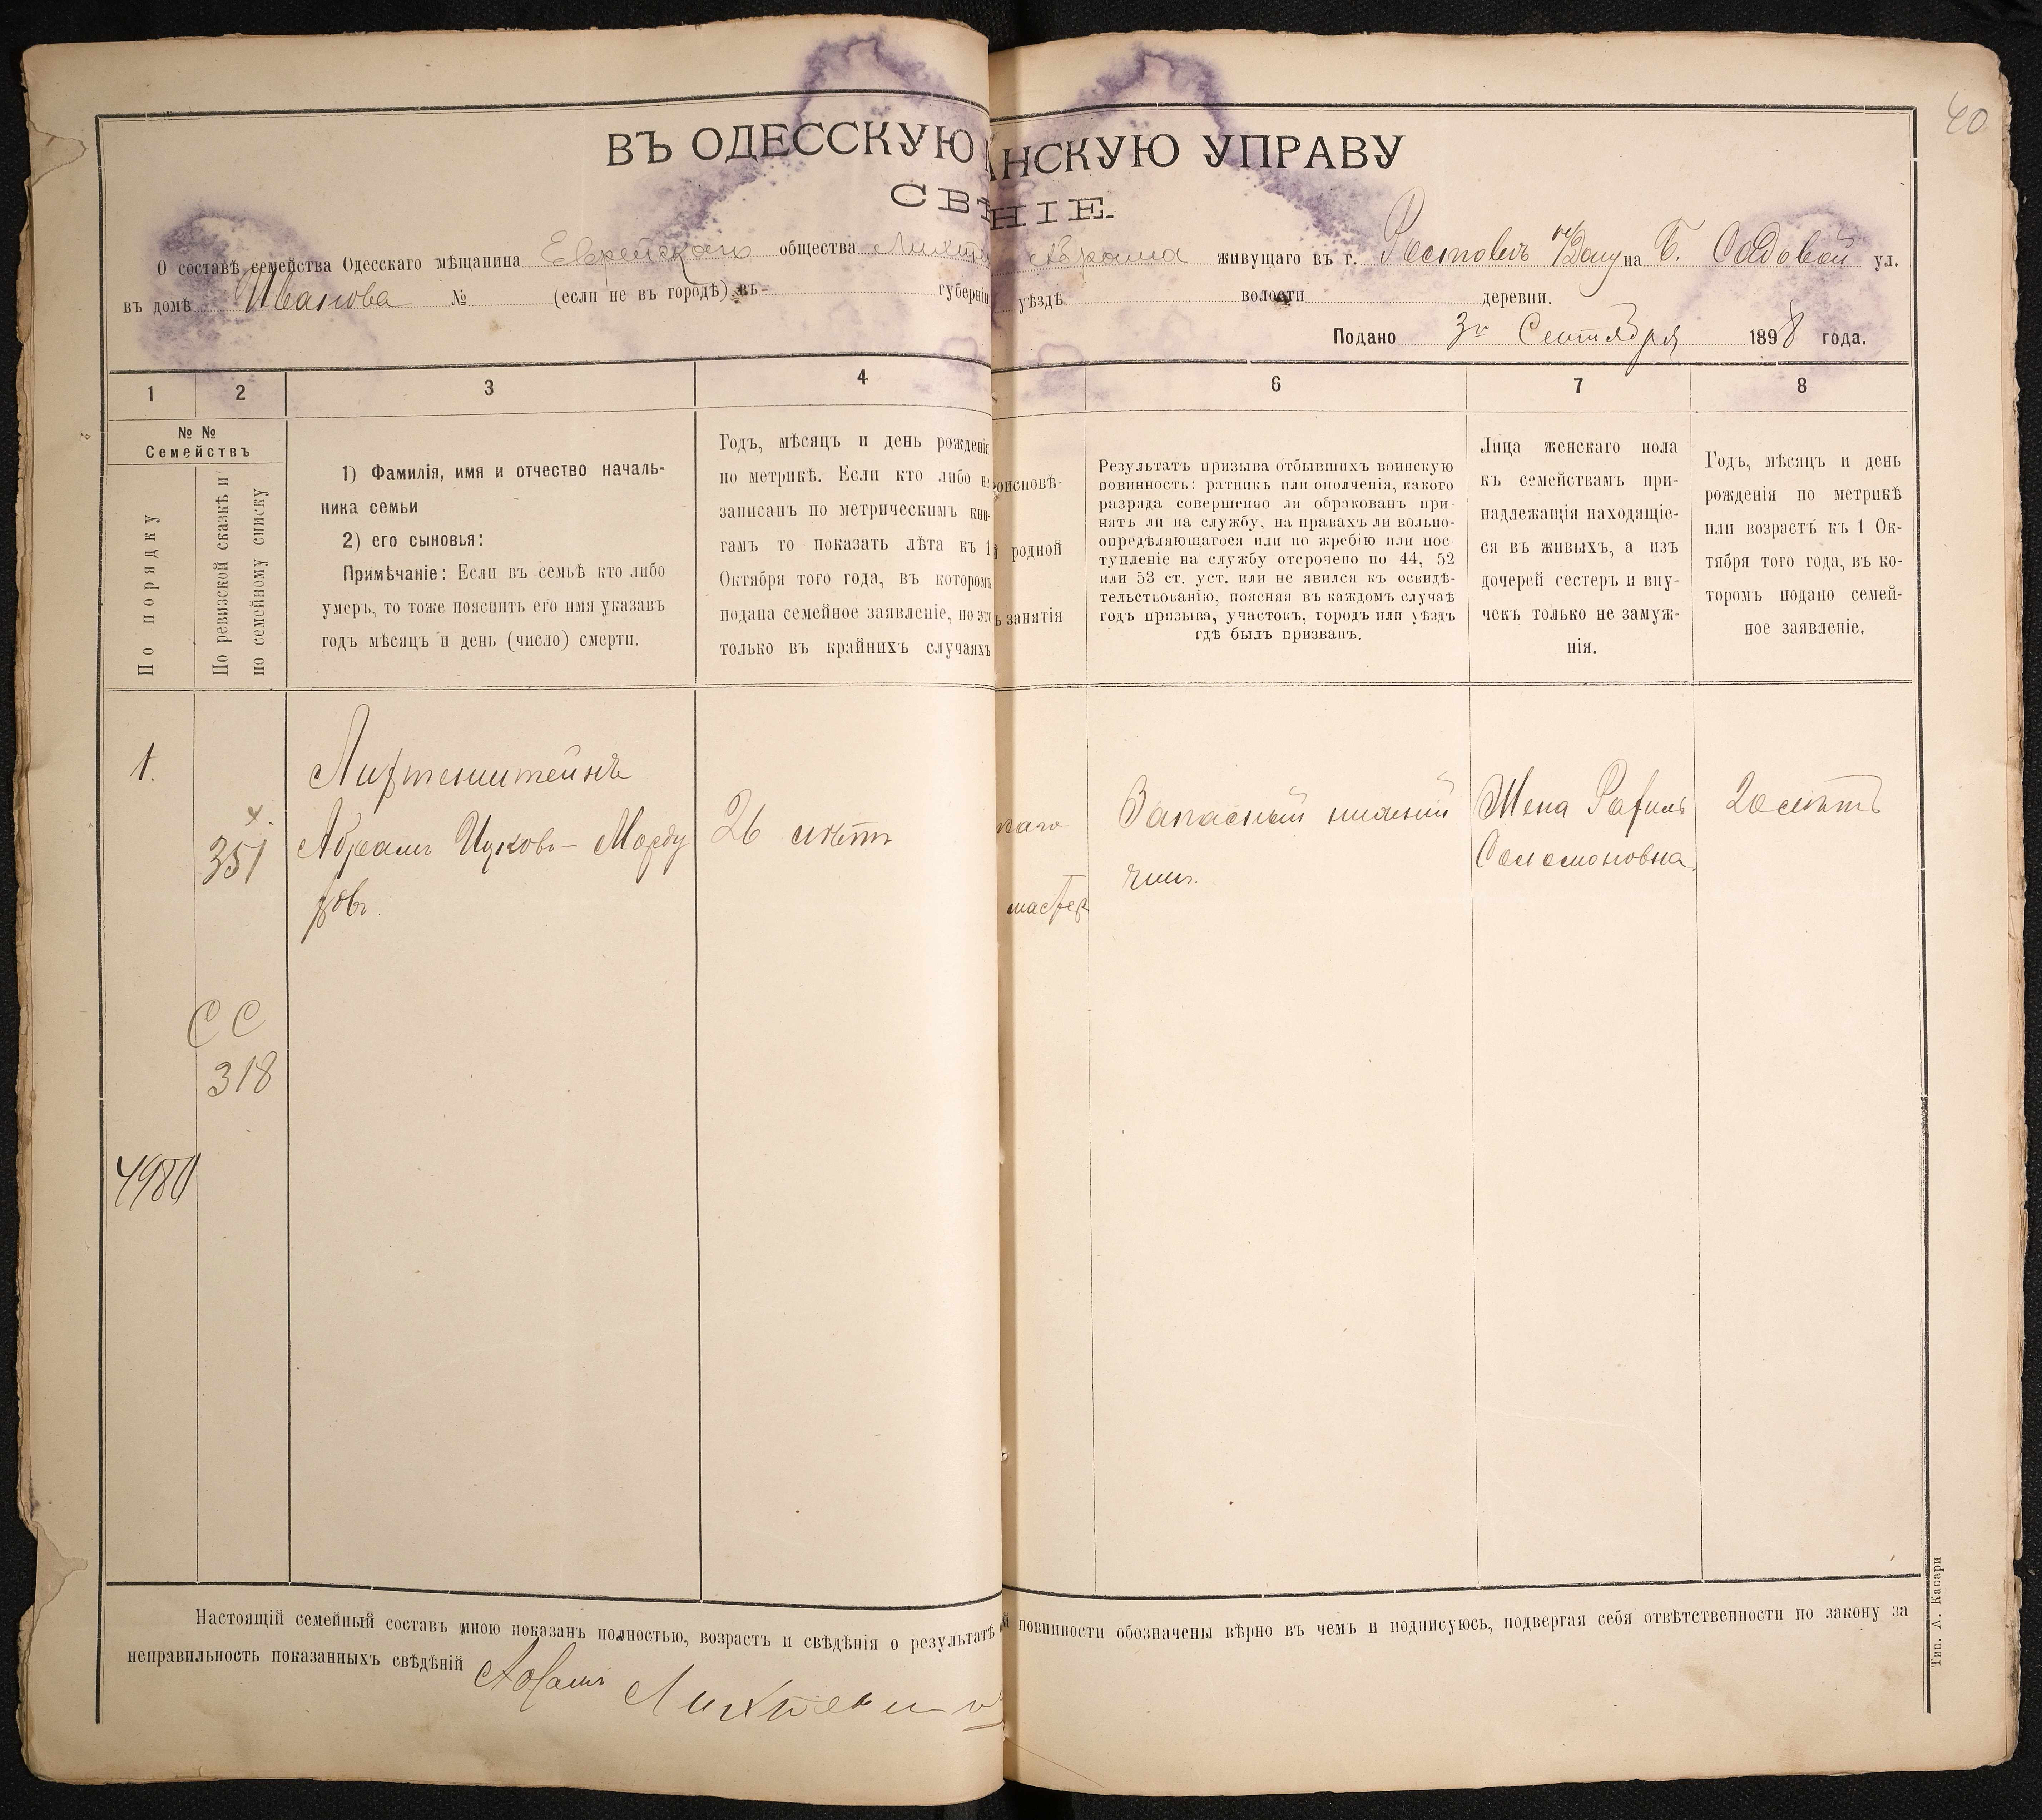 40
ВЪ ОДЕССКУЮ НСКУЮ УПРАВУ
СВѢНІЕ.
О составѣ семейства Одесскаго мѣщанина Еврейскаго общества Лихте Абрама живущаго въ г. Ростовѣ н/Дону на Б. Садовой ул.
въ домѣ Иванова № (если не въ городѣ) въ губерніи уѣздѣ волости деревни.
Подано 3го Сентября 1898 года.
1 2 3 4 6 7 8
№ №
Семействъ
По порядку
По ревизской сказкѣ и
по семейному списку
1) Фамилія, имя и отчество началь-
ника семьи
2) его сыновья:
Примѣчаніе: Если въ семьѣ кто либо
умеръ, то тоже пояснить его имя указавъ
годъ мѣсяцъ и день (число) смерти.
Годъ, мѣсяцъ и день рожденія
по метрикѣ. Если кто либо не
записанъ по метрическимъ кни-
гамъ то показать лѣта къ 1
Октября того года, въ которомъ
подана семейное заявленіе, но это
только въ крайнихъ случаяхъ
роисповѣ-
й родной
ъ занятія
Результатъ призыва отбывшихъ воинскую
повинность: ратникъ или ополченія, какого
разряда совершенно ли обракованъ при-
нять ли на службу, на правахъ ли вольно-
опредѣляющагося или по жребію или пос-
тупленіе на службу отсрочено по 44, 52
или 53 ст. уст. или не явился къ освидѣ-
тельствованію, поясняя въ каждомъ случаѣ
годъ призыва, участокъ, городъ или уѣздъ
гдѣ былъ призванъ.
Лица женскаго пола
къ семействамъ при-
надлежащія находящіе-
ся въ живыхъ, а изъ
дочерей сестеръ и вну-
чекъ только не замуж-
нія.
Годъ, мѣсяцъ и день
рожденія по метрикѣ
или возрастъ къ 1 Ок-
тября того года, въ ко-
торомъ подано семей-
ное заявленіе.
1.
Лихтенштейнъ
х.
351
Абрамъ Ицковъ-Морду
ховъ.
26 лѣтъ
мастер
Запасный нижній
чинъ.
Жена Рахиль
Соломоновна
20 лѣтъ
СС
318
4980
Настоящій семейный составъ мною показанъ полностью, возрастъ и свѣдѣнія о результатѣ й повинности обозначены вѣрно въ чемъ и подписуюсь, подвергая себя отвѣтственности по закону за
неправильность показанныхъ свѣдѣній Абрамъ Лихтенш
Тип. А. Канари